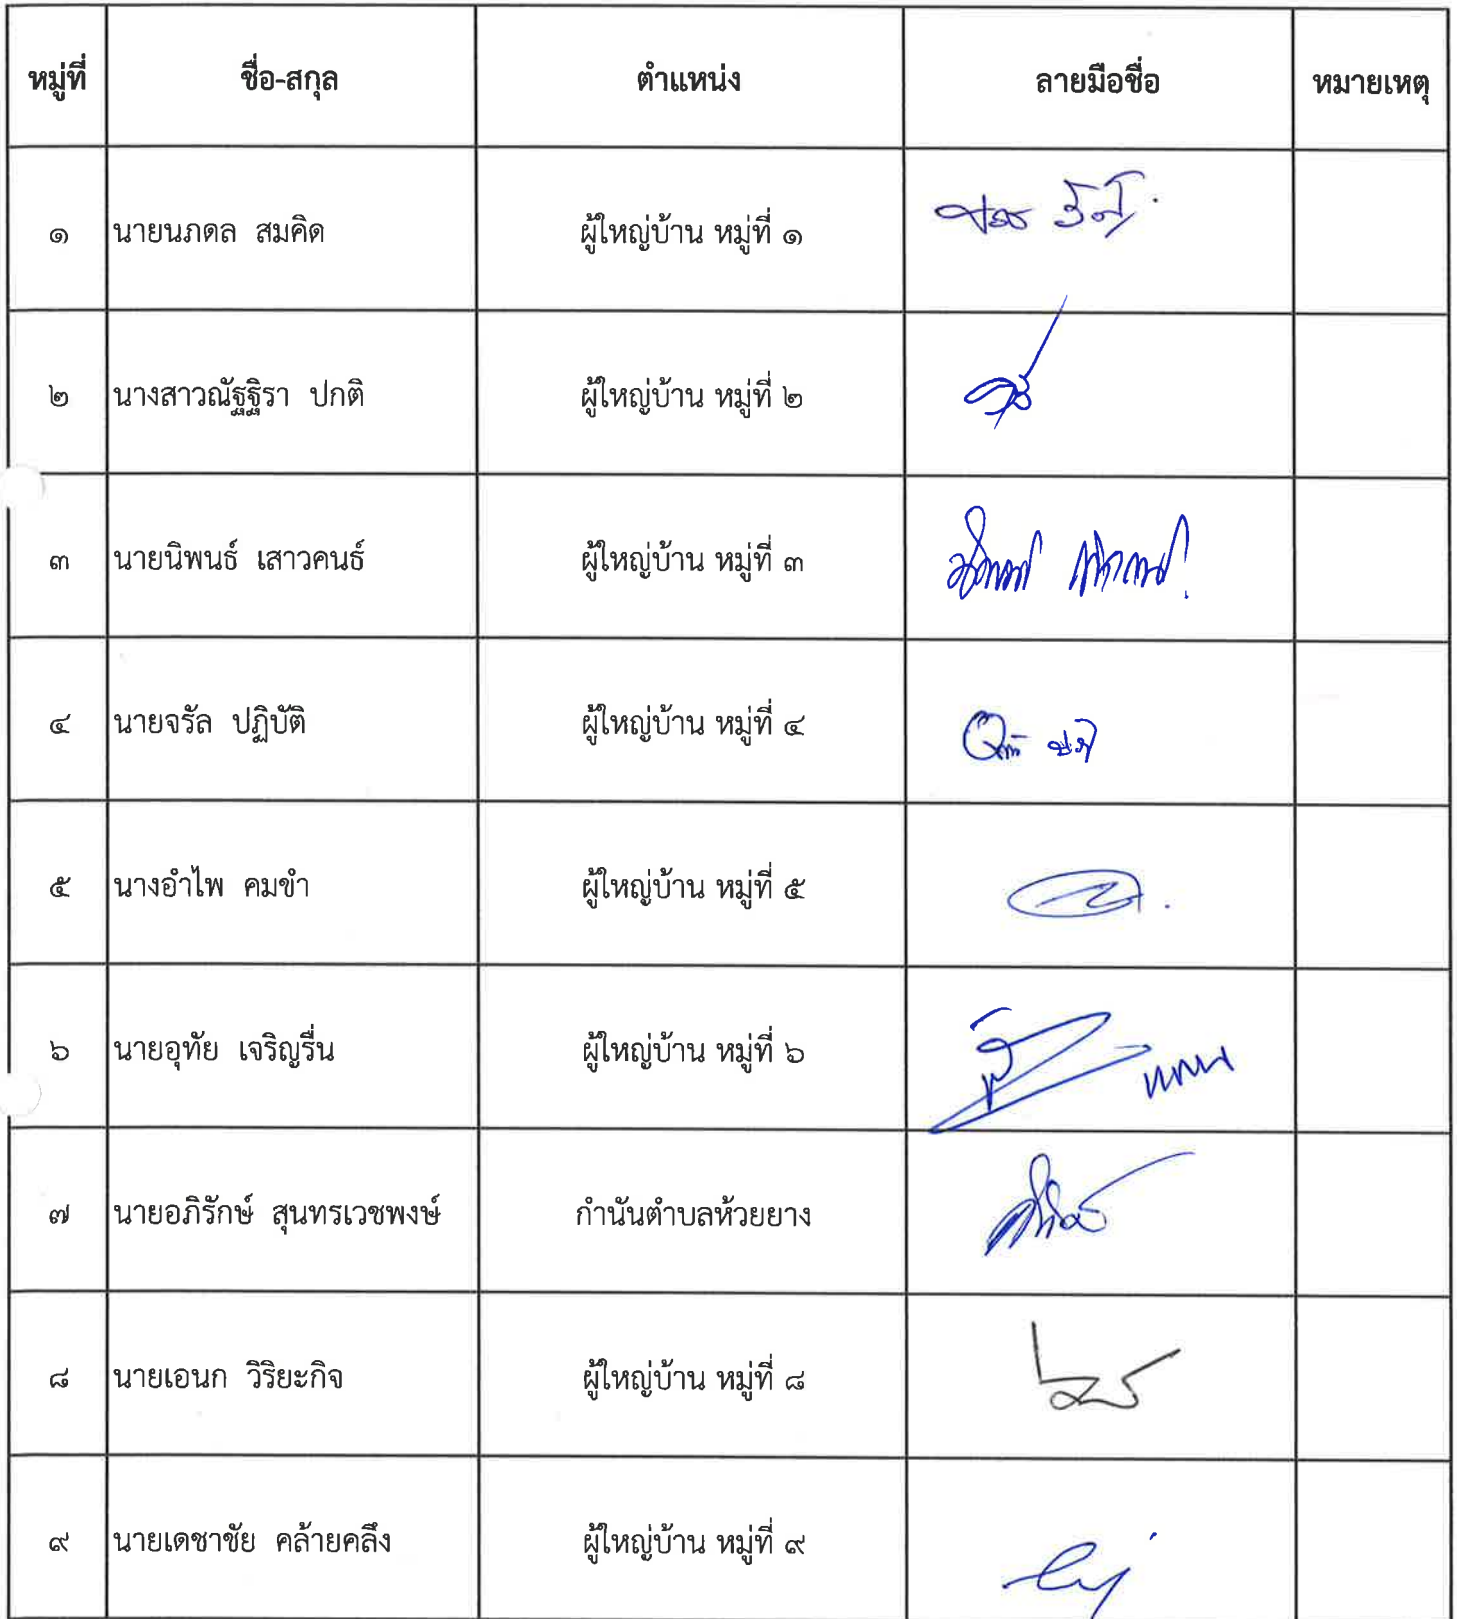 หมู่ที่ ชื่อ-สกุล ตำแหน่ง ลายมือชื่อ หมายเหตุ
๑ นายนภดล สมคิด ผู้ใหญ่บ้าน หมู่ที่ ๑
๒ นางสาวณัฐฐิรา ปกติ ผู้ใหญ่บ้าน หมู่ที่ ๒
๓ นายนิพนธ์ เสาวคนธ์ ผู้ใหญ่บ้าน หมู่ที่ ๓
๔ นายจรัล ปฏิบัติ ผู้ใหญ่บ้าน หมู่ที่ ๔
๕ นางอำไพ คมขำ ผู้ใหญ่บ้าน หมู่ที่ ๕
๖ นายอุทัย เจริญรื่น ผู้ใหญ่บ้าน หมู่ที่ ๖
๗ นายอภิรักษ์ สุนทรเวชพงษ์ กำนันตำบลห้วยยาง
๘ นายเอนก วิริยะกิจ ผู้ใหญ่บ้าน หมู่ที่ ๘
๙ นายเดชาชัย คล้ายคลึง ผู้ใหญ่บ้าน หมู่ที่ ๙